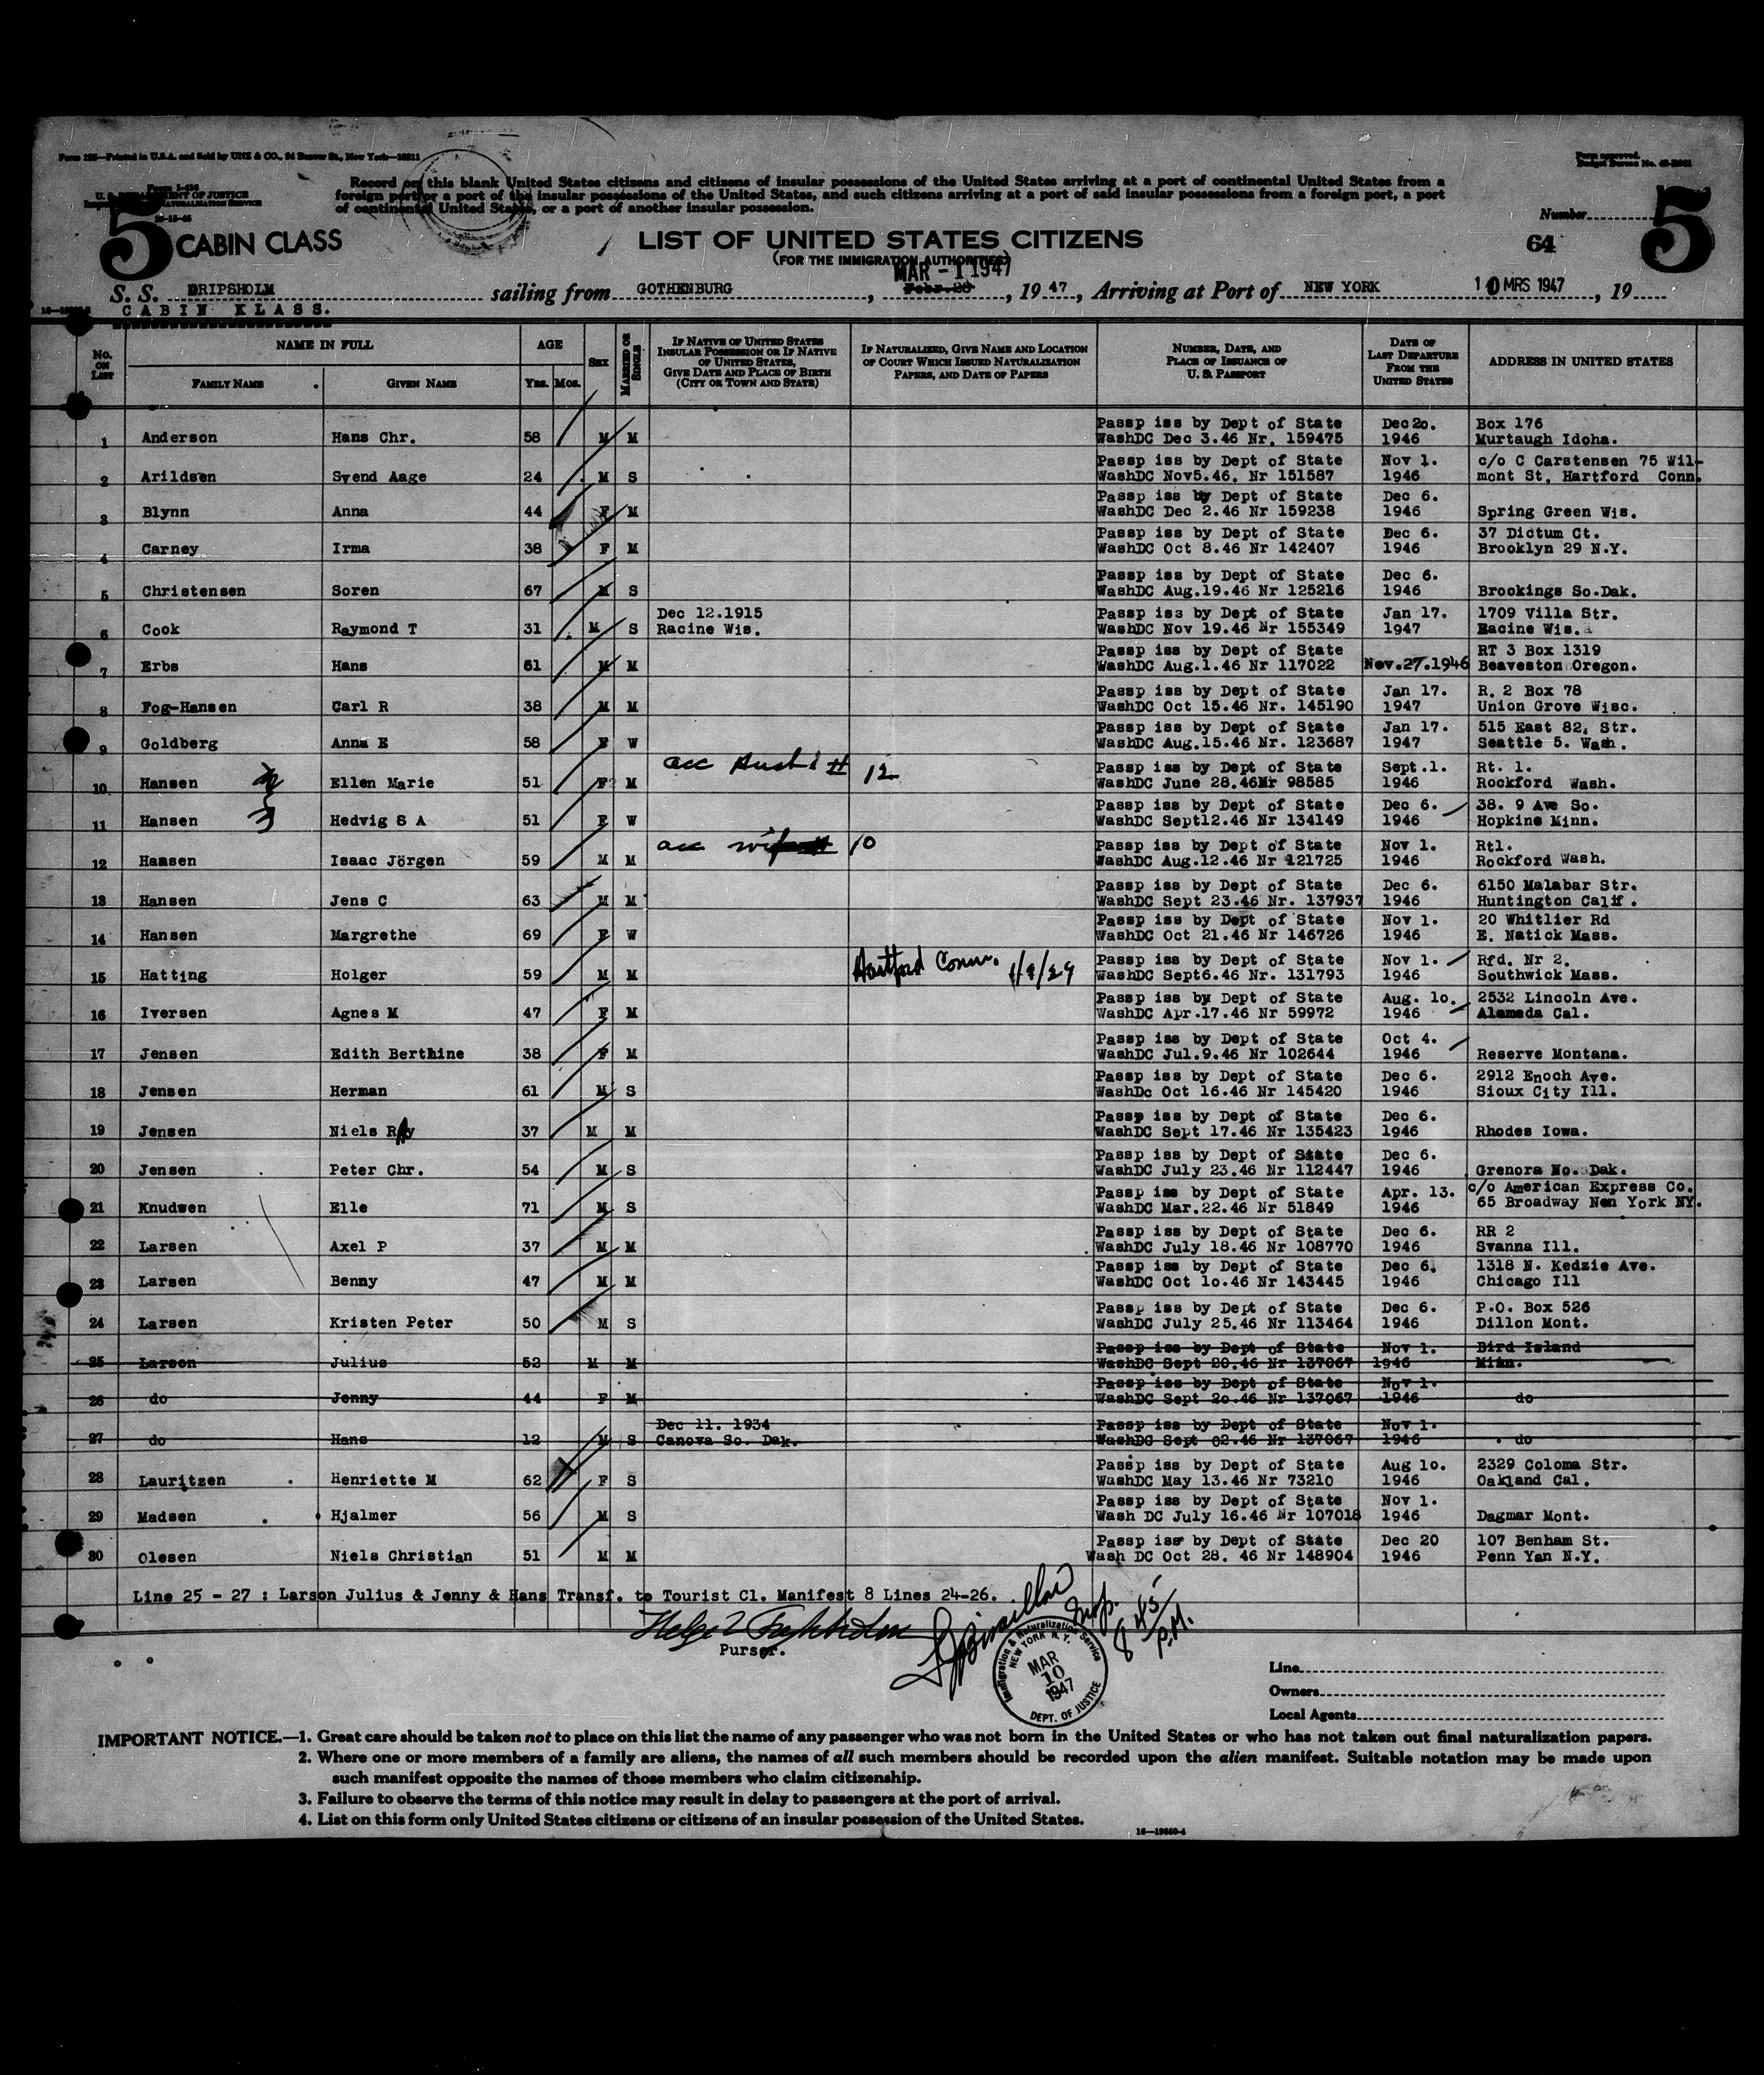 Form 125—Printed in U.S.A. and Sold by UNZ & CO., 24 Beaver St., New York—
Form approved.
Budget Bureau No.
Form I-416
U. S. DEPARTMENT OF JUSTICE
Record on this blank United States citizens and citizens of insular possessions of the United States arriving at a port of continental United States from a
foreign port or a port of the insular possessions of the United States, and such citizens arriving at a port of said insular possessions from a foreign port, a port
of continental United States, or a port of another insular possession.
Number
5 CABIN CLASS LIST OF UNITED STATES CITIZENS 64 5
(FOR THE IMMIGRATION AUTHORITIES)
MAR - 1 1947
S. S. DRIPSHOLM sailing from GOTHENBURG , Febr. 28 , 19 47 , Arriving at Port of NEW YORK 10 MRS 1947 , 19
CABIN KLASS.
No. ON LIST NAME IN FULL FAMILY NAME GIVEN NAME AGE YRS. MOS. SEX MARRIED OR SINGLE IF NATIVE OF UNITED STATES INSULAR POSSESSION OR IF NATIVE OF UNITED STATES, GIVE DATE AND PLACE OF BIRTH (CITY OR TOWN AND STATE) IF NATURALIZED, GIVE NAME AND LOCATION OF COURT WHICH ISSUED NATURALIZATION PAPERS, AND DATE OF PAPERS NUMBER, DATE, AND PLACE OF ISSUANCE OF U. S. PASSPORT DATE OF LAST DEPARTURE FROM THE UNITED STATES ADDRESS IN UNITED STATES
Passp iss by Dept of State Dec 2o. Box 176
1 Anderson Hans Chr. 58 M M WashDC Dec 3.46 Nr. 159475 1946 Murtaugh Idoha.
Passp iss by Dept of State Nov 1. c/o C Carstensen 75 Wil-
2 Arildsen Svend Aage 24 M S WashDC Nov5.46. Nr 151587 1946 mont St. Hartford Conn.
Passp iss by Dept of State Dec 6.
3 Blynn Anna 44 F M WashDC Dec 2.46 Nr 159238 1946 Spring Green Wis.
Passp iss by Dept of State Dec 6. 37 Dictum Ct.
4 Carney Irma 38 F M WashDC Oct 8.46 Nr 142407 1946 Brooklyn 29 N.Y.
Passp iss by Dept of State Dec 6.
5 Christensen Soren 67 M S WashDC Aug.19.46 Nr 125216 1946 Brookings So.Dak.
Dec 12.1915 Passp iss by Dept of State Jan 17. 1709 Villa Str.
6 Cook Raymond T 31 M S Racine Wis. WashDC Nov 19.46 Nr 155349 1947 Racine Wis.
Passp iss by Dept of State RT 3 Box 1319
7 Erbs Hans 61 M M WashDC Aug.1.46 Nr 117022 Nov.27.1946 Beaveston Oregon.
Passp iss by Dept of State Jan 17. R. 2 Box 78
8 Fog-Hansen Carl R 38 M M WashDC Oct 15.46 Nr. 145190 1947 Union Grove Wisc.
Passp iss by Dept of State Jan 17. 515 East 82. Str.
9 Goldberg Anna E 58 F W WashDC Aug.15.46 Nr. 123687 1947 Seattle 5. Wash.
acc Husb'd # 12 Passp iss by Dept of State Sept.1. Rt. 1.
10 Hansen Ellen Marie 51 F M WashDC June 28.46Nr 98585 1946 Rockford Wash.
Passp iss by Dept of State Dec 6. 38. 9 Ave So.
11 Hansen Hedvig S A 51 F W WashDC Sept12.46 Nr 134149 1946 Hopkine Minn.
acc wife 10 Passp iss by Dept of State Nov 1. Rt1.
12 Hansen Isaac Jörgen 59 M M WashDC Aug.12.46 Nr 121725 1946 Rockford Wash.
Passp iss by Dept of State Dec 6. 6150 Malabar Str.
13 Hansen Jens C 63 M M WashDC Sept 23.46 Nr. 137937 1946 Huntington Calif.
Passp iss by Dept of State Nov 1. 20 Whitlier Rd
14 Hansen Margrethe 69 F W WashDC Oct 21.46 Nr 146726 1946 E. Natick Mass.
Passp iss by Dept of State Nov 1. Rfd. Nr 2.
15 Hatting Holger 59 M M Hartford Conn. WashDC Sept6.46 Nr. 131793 1946 Southwick Mass.
Passp iss by Dept of State Aug. 1o. 2532 Lincoln Ave.
16 Iversen Agnes M 47 F M WashDC Apr.17.46 Nr 59972 1946 Alameda Cal.
Passp iss by Dept of State Oct 4.
17 Jensen Edith Berthine 38 F M WashDC Jul.9.46 Nr 102644 1946 Reserve Montana.
Passp iss by Dept of State Dec 6. 2912 Enoch Ave.
18 Jensen Herman 61 M S WashDc Oct 16.46 Nr 145420 1946 Sioux City Ill.
Passp iss by Dept of State Dec 6.
19 Jensen Niels Ray 37 M M WashDC Sept 17.46 Nr 135423 1946 Rhodes Iowa.
Passp iss by Dept of State Dec 6.
20 Jensen Peter Chr. 54 M S WashDC July 23.46 Nr 112447 1946 Grenora No. Dak.
Passp iss by Dept of State Apr. 13. c/o American Express Co.
21 Knudwen Elle 71 M S WashDC Mar.22.46 Nr 51849 1946 65 Broadway Nen York NY.
Passp iss by Dept of State Dec 6. RR 2
22 Larsen Axel P 37 M M WashDC July 18.46 Nr 108770 1946 Svanna Ill.
Passp iss by Dept of State Dec 6. 1318 N. Kedzie Ave.
23 Larsen Benny 47 M M WashDC Oct 1o.46 Nr 143445 1946 Chicago Ill
Passp iss by Dept of State Dec 6. P.O. Box 526
24 Larsen Kristen Peter 50 M S WashDC July 25.46 Nr 113464 1946 Dillon Mont.
Passp iss by Dept of State Nov 1. Bird Island
25 Larson Julius 52 M M WashDC Sept 20.46 Nr 137067 1946 Minn.
Passp iss by Dept of State Nov 1.
26 do Jenny 44 F M WashDC Sept 2o.46 Nr 137067 1946 do
Dec 11. 1934 Passp iss by Dept of State Nov 1.
27 do Hans 12 M S Canova So. Dak. WashDC Sept 02.46 Nr 137067 1946 do
Passp iss by Dept of State Aug 1o. 2329 Coloma Str.
28 Lauritzen Henriette M 62 F S WashDC May 13.46 Nr 73210 1946 Oakland Cal.
Passp iss by Dept of State Nov 1.
29 Madsen Hjalmer 56 M S Wash DC July 16.46 Nr 107018 1946 Dagmar Mont.
Passp iss by Dept of State Dec 20 107 Benham St.
30 Olesen Niels Christian 51 M M Wash DC Oct 28. 46 Nr 148904 1946 Penn Yan N.Y.
Line 25 - 27 : Larson Julius & Jenny & Hans Transf. to Tourist Cl. Manifest 8 Lines 24-26.
Insp.
8 45 P.M.
Purser.
Immigration & Naturalization Service
NEW YORK N. Y.
MAR
10
1947
DEPT. OF JUSTICE
Line
Owners
Local Agents
IMPORTANT NOTICE.—1. Great care should be taken not to place on this list the name of any passenger who was not born in the United States or who has not taken out final naturalization papers.
2. Where one or more members of a family are aliens, the names of all such members should be recorded upon the alien manifest. Suitable notation may be made upon
such manifest opposite the names of those members who claim citizenship.
3. Failure to observe the terms of this notice may result in delay to passengers at the port of arrival.
4. List on this form only United States citizens or citizens of an insular possession of the United States.